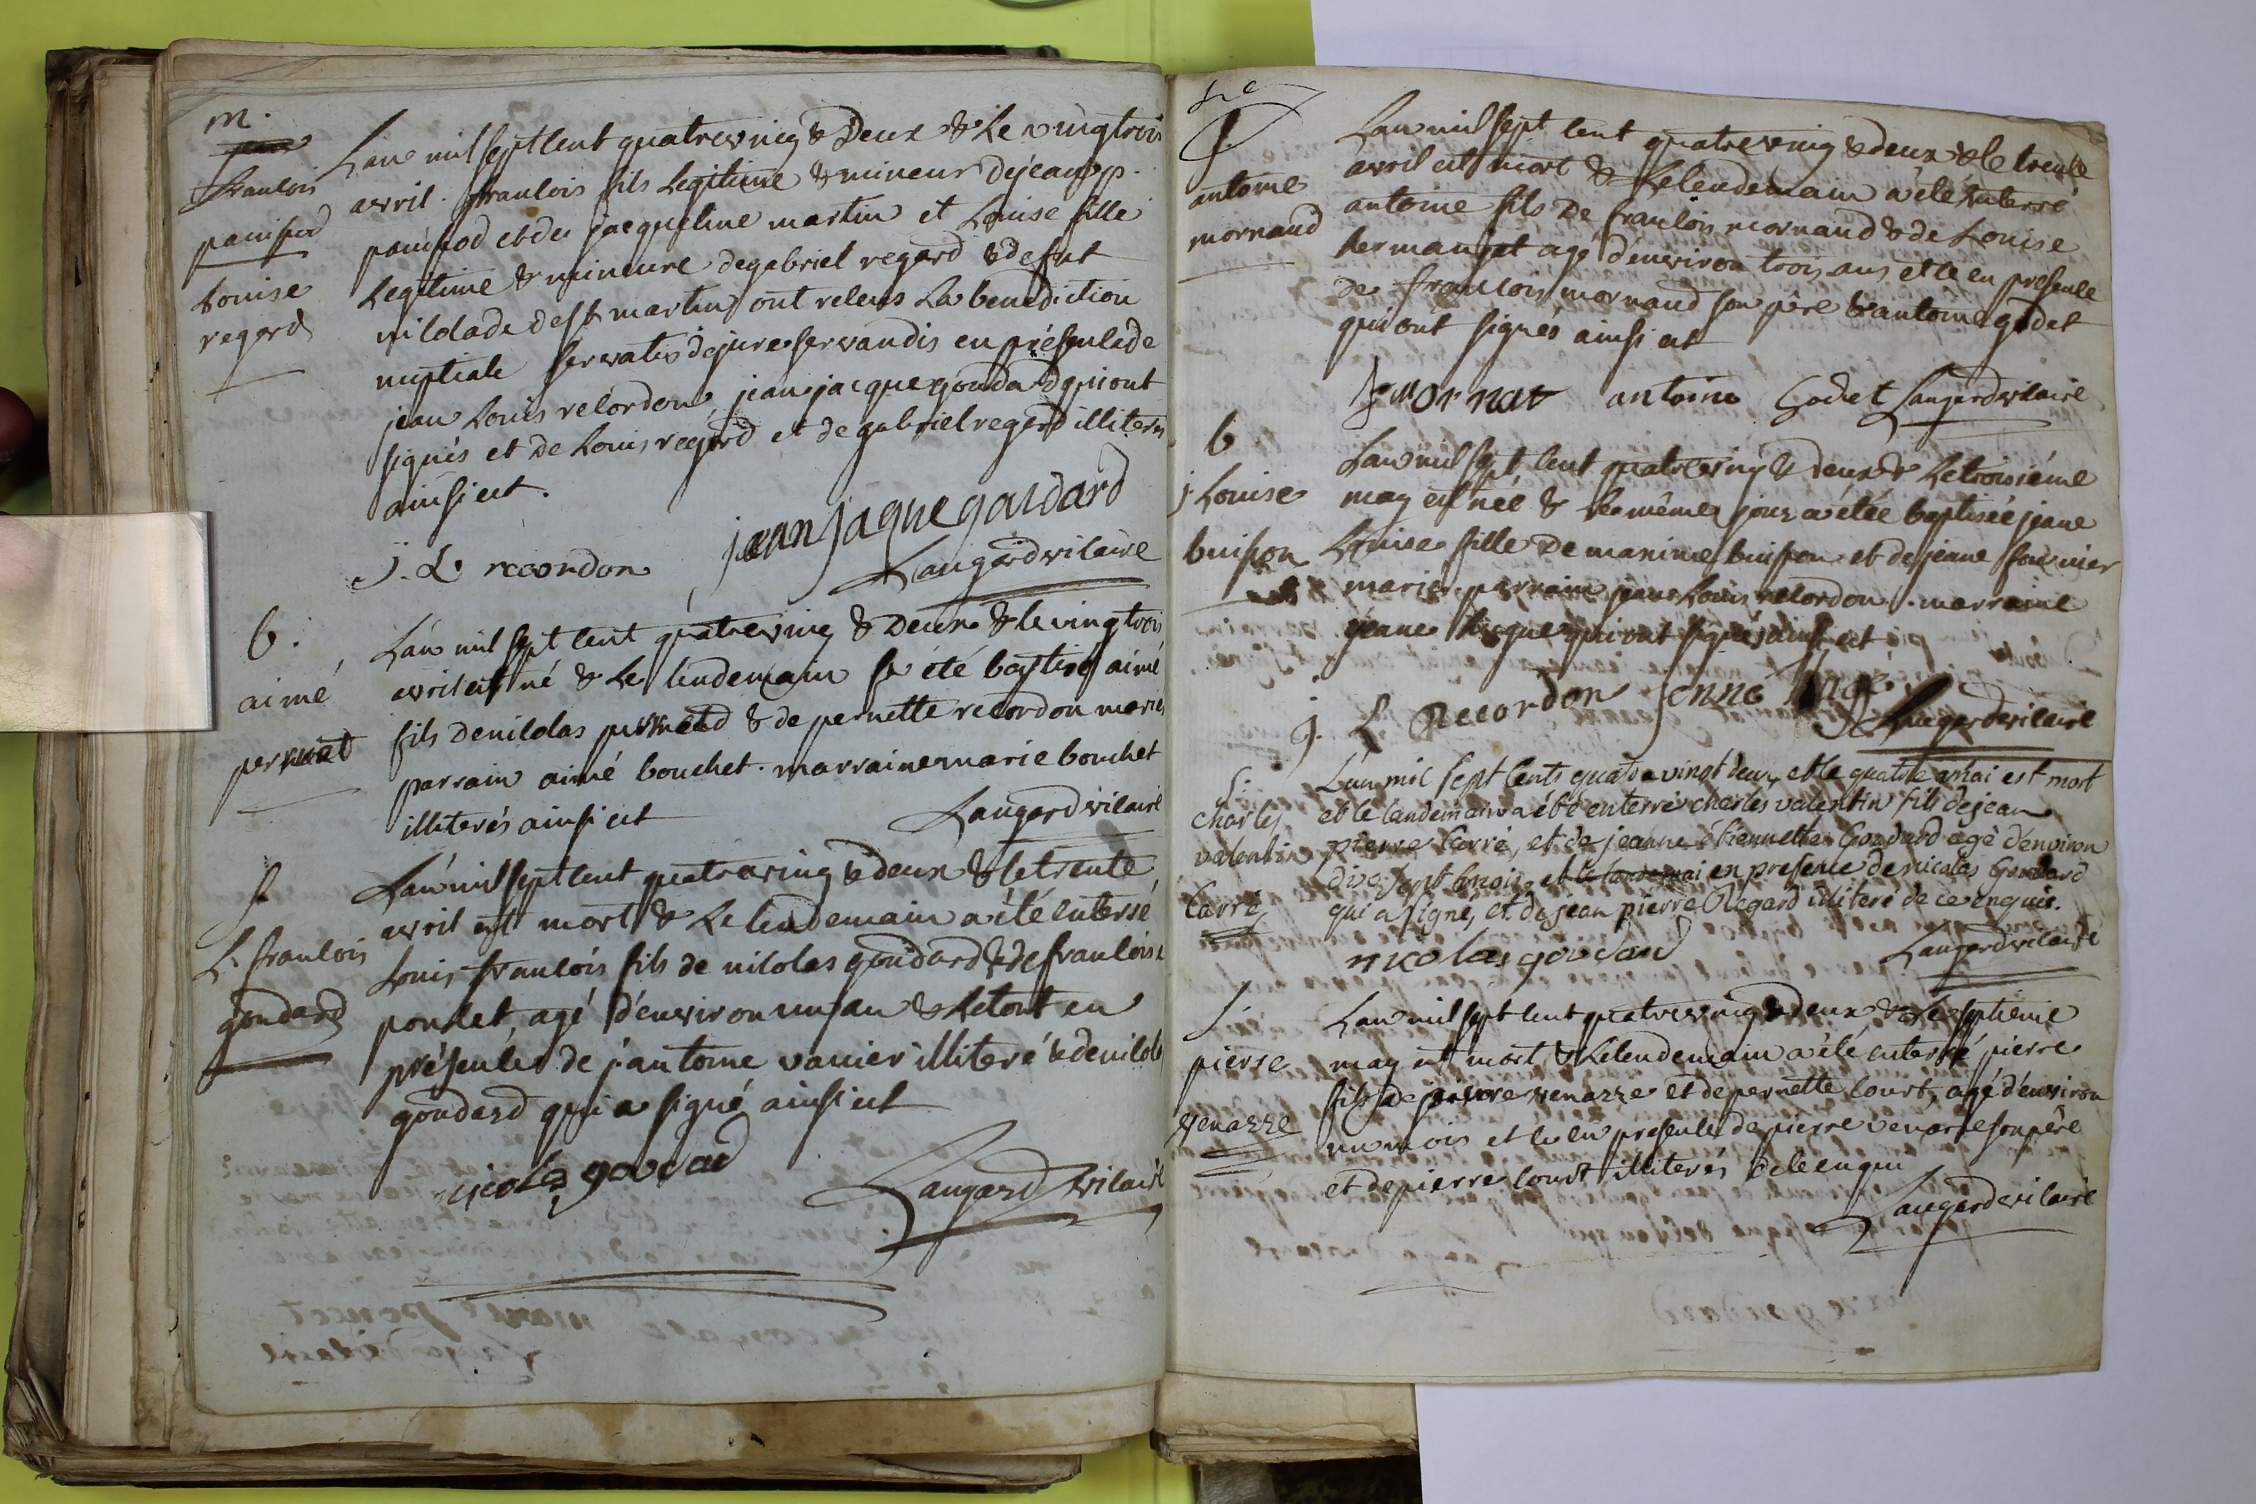 m.
francois
painpod
Louise
regard
Lan mil sept cent quatreving & deux & le vingtrois
avril. francois fils Legitime & mineur dejean p.
painpod et de jacqueline martin et Louise fille
Legitime & mineure degabriel regard & defut
nicolade dest martin ont receus La benediction
nuptiale servatis dejure servandis en présencede
jean Louis recordon, jean jacque goudard qui ont
signés et de Louis regard et de gabriel regard illiterés
ainsi est.
jean jaque gaudard
j. L recordon
Laugard vicaire
b.
aimé
pernat
Lan mil sept cent quatreving & Deux & le vingtrois
avril est né & Le lendemain a été baptisé aimé
fils denicolas & de pernette recordon mariés
parrain aimé bouchet. marraine marie bouchet
illiterés ainsi est
Laugard vicaire
s.
L. francois
goudard
Lan mil sept cent quatreving & deux & le trente
avril est mort & Le lendemain a été enterré
Louis francois fils de nicolas goudard & de francoise
poncet, agé d'environ un an & letout en
présence de j. antoine vanier illiteré & de nicolas
goudard qui a signé ainsi est
nicolas goudard
Laugard vicaire
s.
antoine
mornaud
Lan mil sept cent quatreving & deux & le trente
avril est mort & Lelendemain a été enterré
antoine fils De francois mornaud & de Louise
hermanjat agé d'environ trois ans et ce en presence
De francois mornaud son père & antoine godet
qui ont signés ainsi est
mornat antoine Godet Laugard vicaire
b
j. Louise
buisson
Lan mil sept cent quatreving & deux & Le troisiéme
may est née & le même jour a étée baptisée jeane
Louise fille De maxime buisson et de jeane fournier
mariés. parrain jean Louis recordon. marraine
jeane qui ont signés ainsi est
j. L Recordon jenne
Laugard vicaire
s.
charles
valentin
Carré
L'an mil sept cents quatre vingt deux et le quatre mai est mort
et le landemain a été enterré charles valentin fils de jean
pierre Carré, et de jeanne étiennette Goudard agé d'environ
dix sept mois, et le landemai en presence de nicolas Goudard
qui a signé, et de jean pierre Regard illiteré de ce enquis.
nicolas goudard
Laugard vicaire
s.
pierre
venazze
Lan mil sept cent quatreving & deux & Le septieme
may est mort & Lelendemain a été enterré pierre
fils de pierre venazze et de pernette Court, agé d'environ
un mois et ce en presence de pierre venazze son père
et de pierre Court illiterés de ce enquis
Laugard vicaire